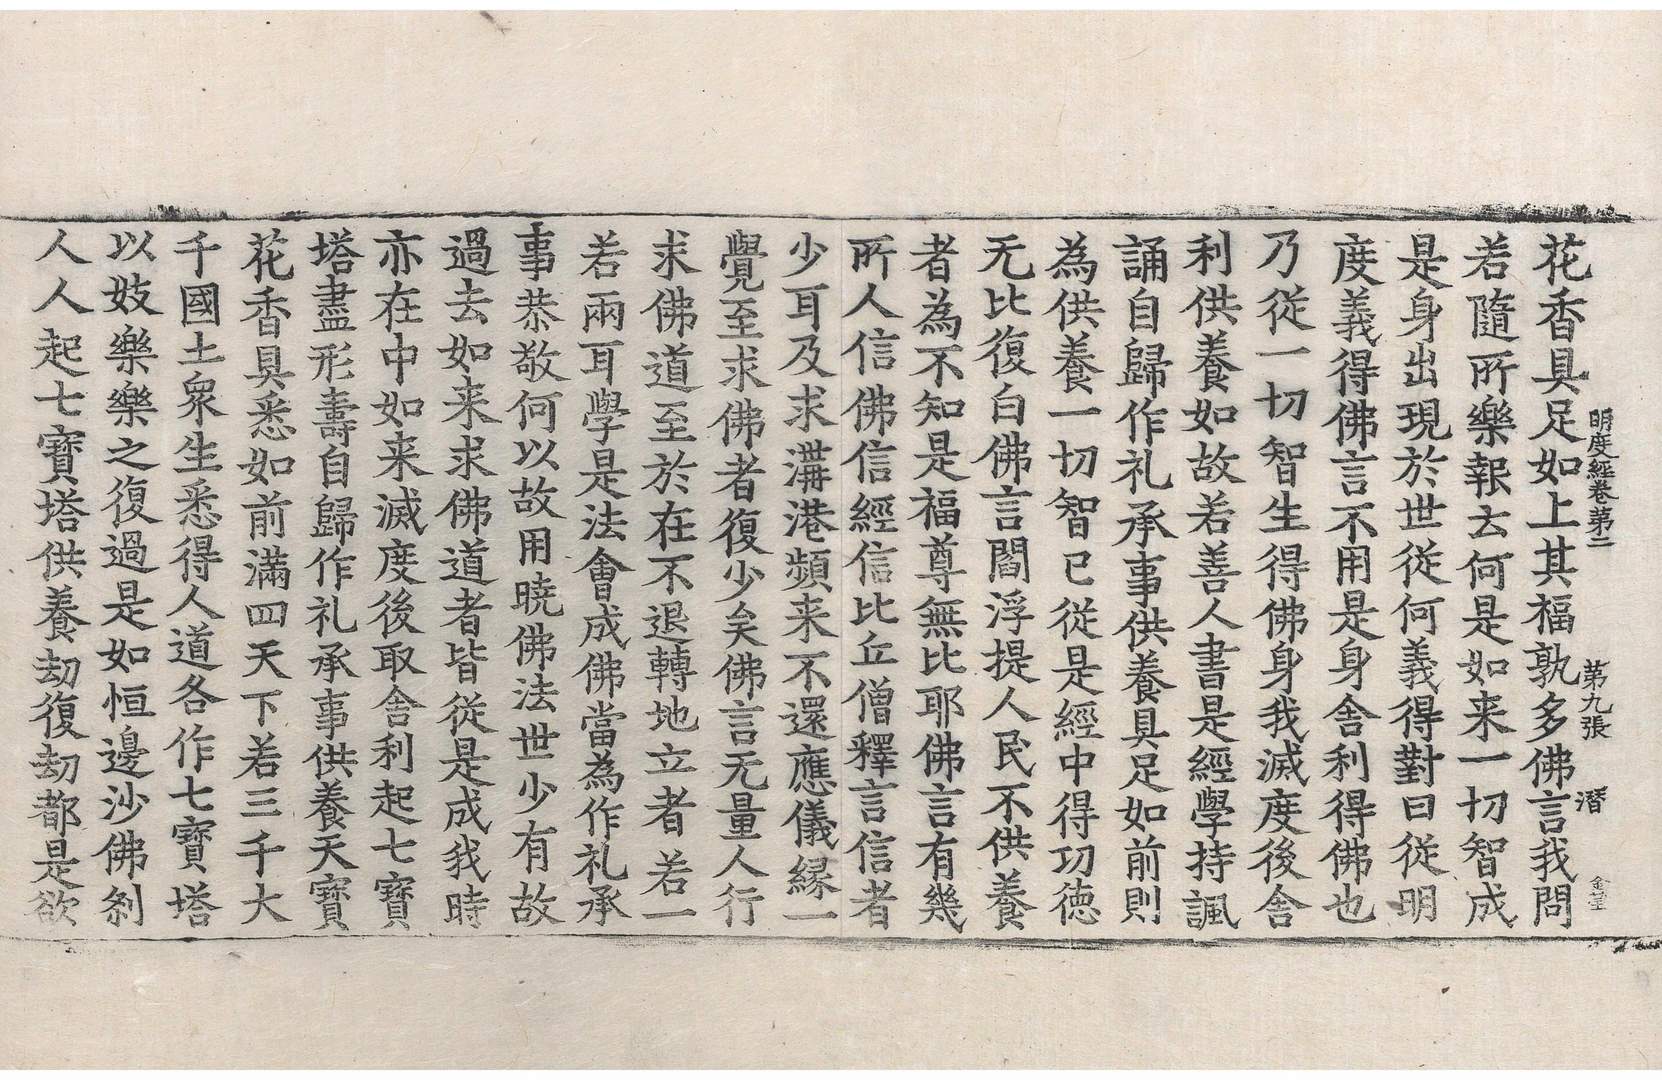 明度經卷第二 第九張 潛
花香具足如上其福孰多佛言我問
若隨所樂報去何是如来一切智成
是身出現於世從何義得對曰從明
度義得佛言不用是身舍利得佛也
乃從一切智生得佛身我滅度後舍
利供養如故若善人書是經學持諷
誦自歸作礼承事供養具足如前則
為供養一切智已從是經中得功德
无比復白佛言閻浮提人民不供養
者為不知是福尊無比耶佛言有幾
所人信佛信經信比丘僧釋言信者
少耳及求溝港頻来不還應儀緣一
覺至求佛者復少矣佛言无量人行
求佛道至於在不退轉地立者若一
若兩耳學是法會成佛當為作礼承
事恭敬何以故用曉佛法世少有故
過去如来求佛道者皆從是成我時
亦在中如来滅度後取舍利起七寶
塔盡形壽自歸作礼承事供養天寶
花香具悉如前滿四天下若三千大
千國土衆生悉得人道各作七寶塔
以妓樂樂之復過是如恒邊沙佛刹
人人起七寶塔供養劫復劫都是欲